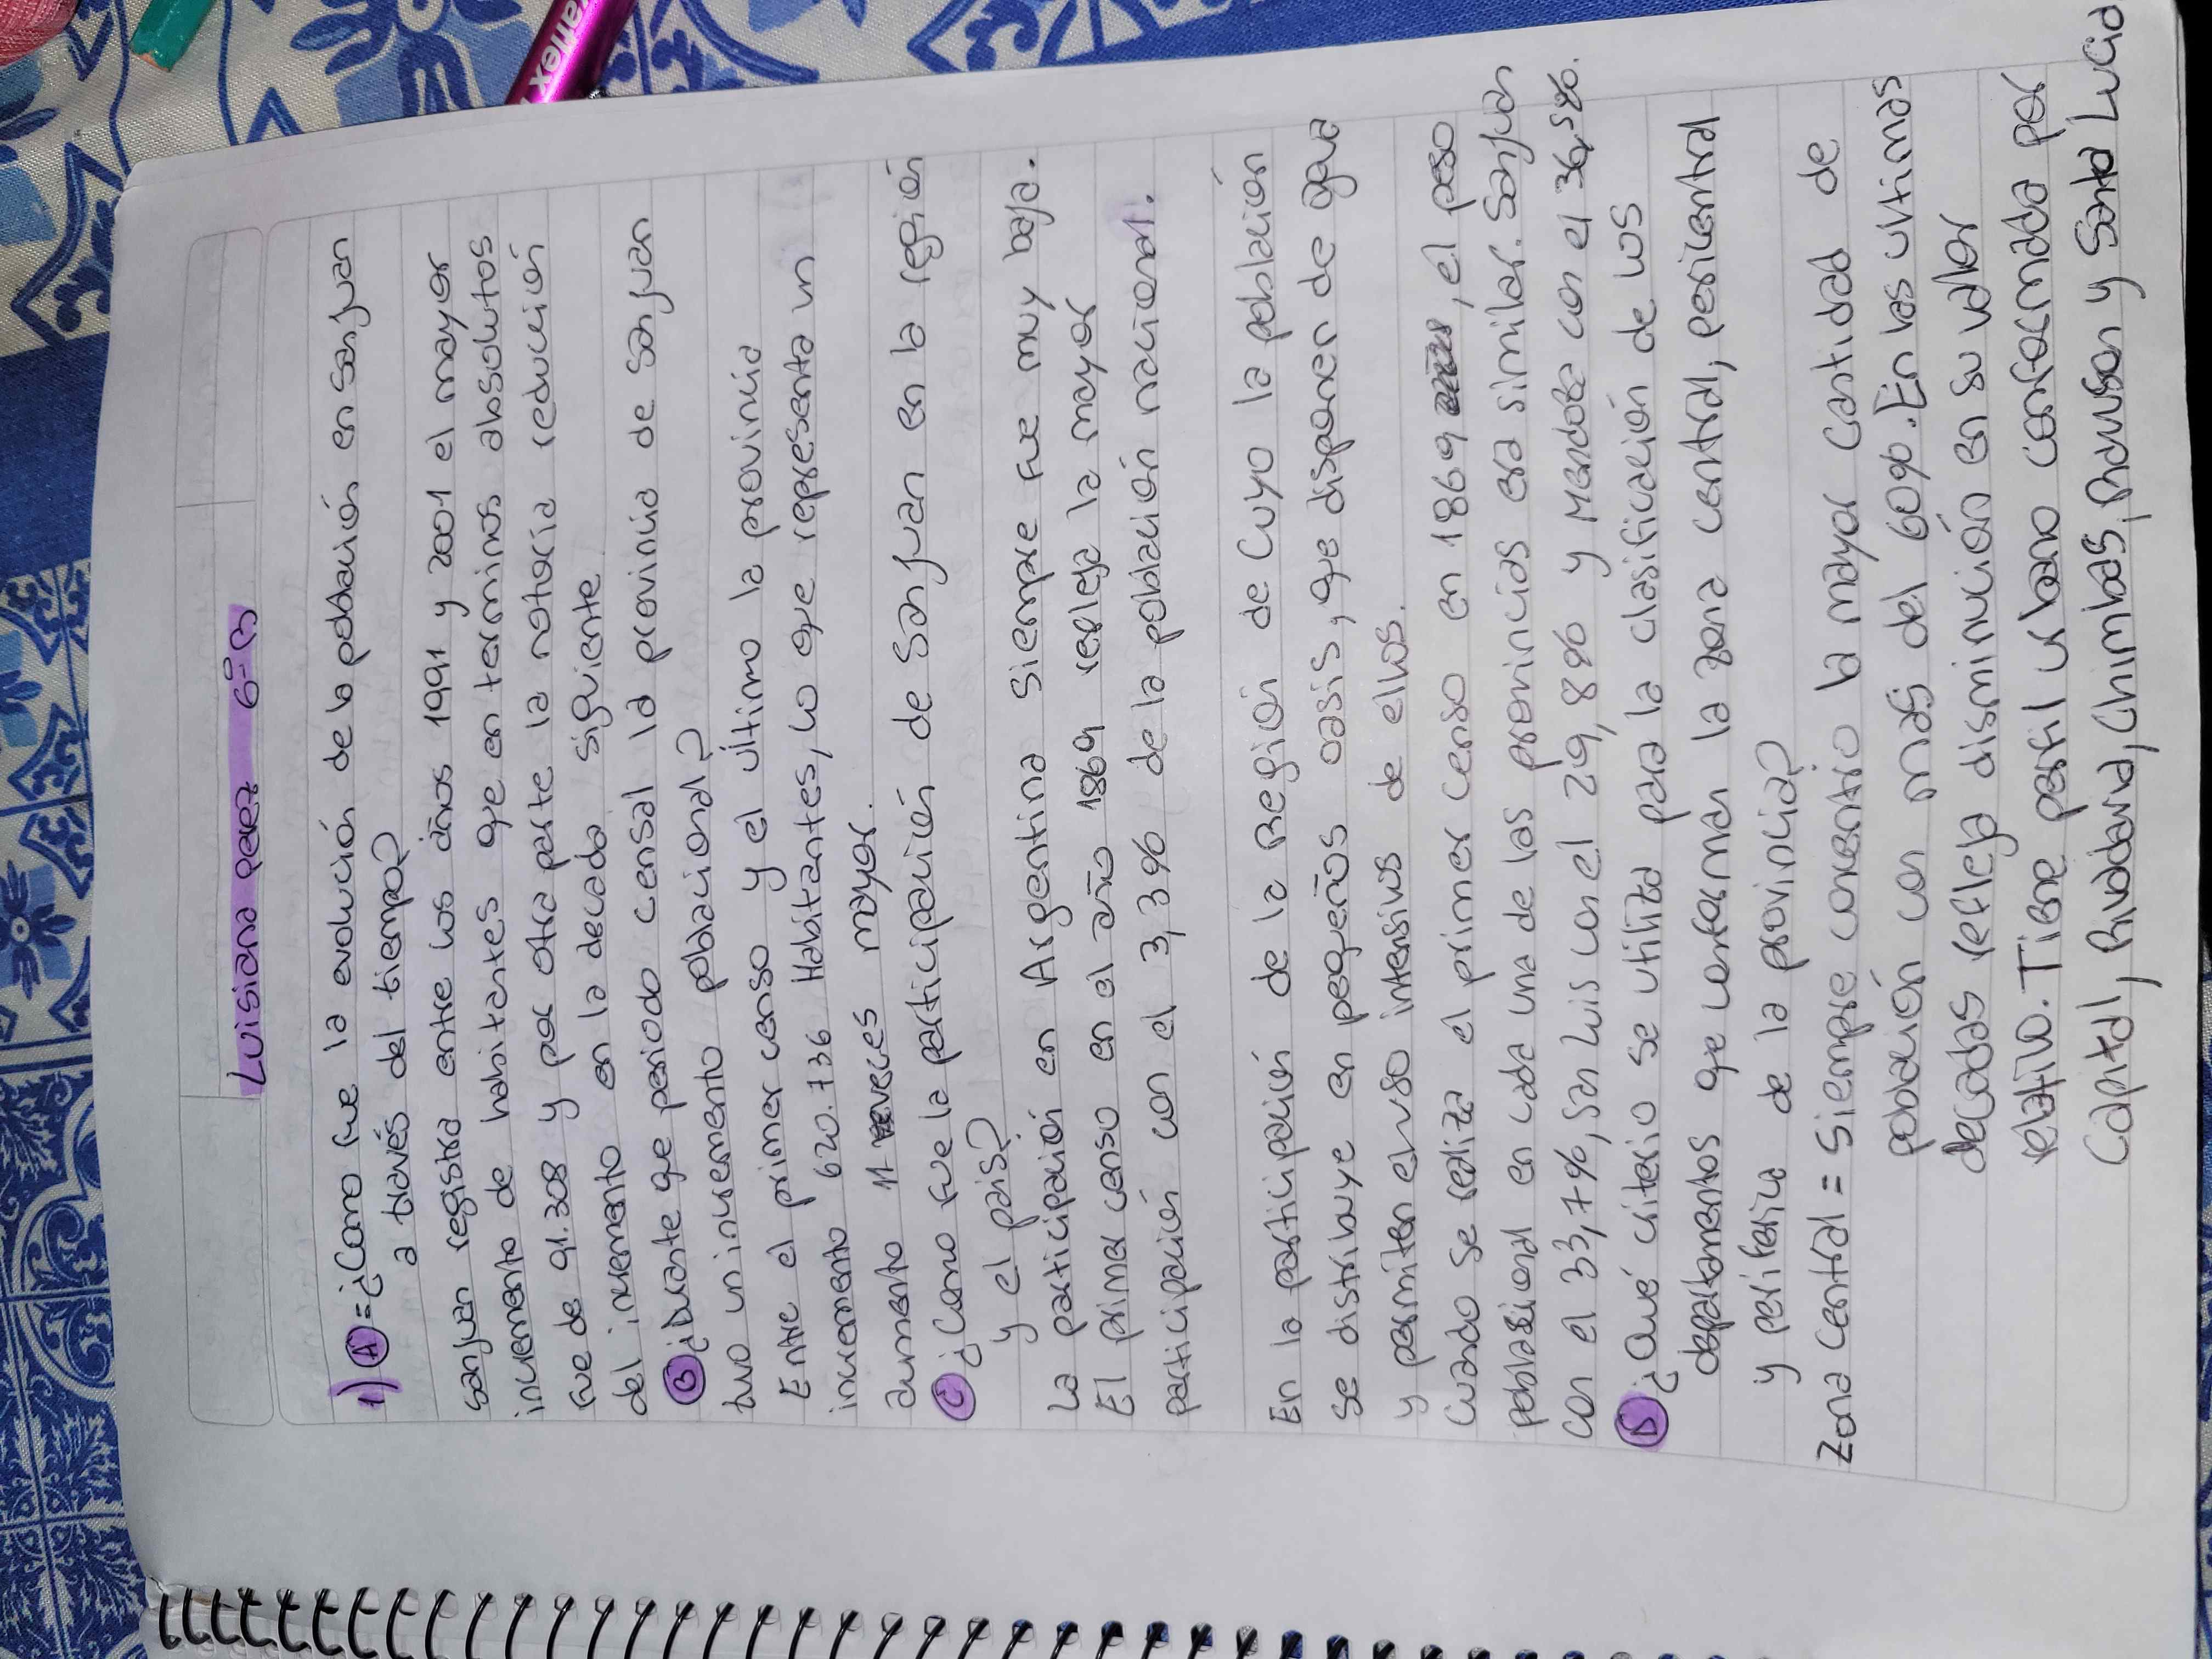 Luisiana perez 6º B
1) A =¿Como fue la evolución de la población en san juan
a través del tiempo?
san juan registra entre los años 1991 y 2001 el mayor
incremento de habitantes que en terminos absolutos
fue de 91.308 y por otra parte la notoria reducción
del incremento en la decada siguiente
B ¿Durante que periodo censal la provincia de san juan
tuvo un incremento poblacional?
Entre el primer censo y el ultimo la provincia
incremento 620.736 Habitantes, lo que representa un
aumento 11 veces mayor.
C ¿Como fue la participación de San juan en la región
y el país?
La participación en Argentina siempre fue muy baja.
El primer censo en el año 1869 refleja la mayor
participación con el 3,3% de la población nacional.
En la participación de la Región de Cuyo la población
se distribuye en pequeños oasis, que disponen de agua
y permiten el uso intensivos de ellos.
Cuando se realiza el primer censo en 1869, el peso
poblacional en cada una de las provincias era similar. San juan
con el 33,7%, san Luis con el 29,8% y Mendoza con el 36,5%.
D ¿Qué criterio se utiliza para la clasificación de los
departamentos que conforman la zona central, pericentral
y periferica de la provincia?
Zona Central = Siempre concentrio la mayor cantidad de
población con más del 60%. En las ultimas
decadas refleja disminución en su valor
relativo. Tiene perfil urbano conformada por
Capital, Rivadavia, Chimbas, Rawson y Santa Lucia